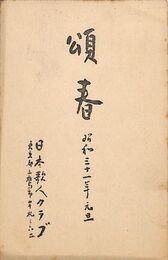 頌春
昭和三十一年元旦
日本歌人クラブ